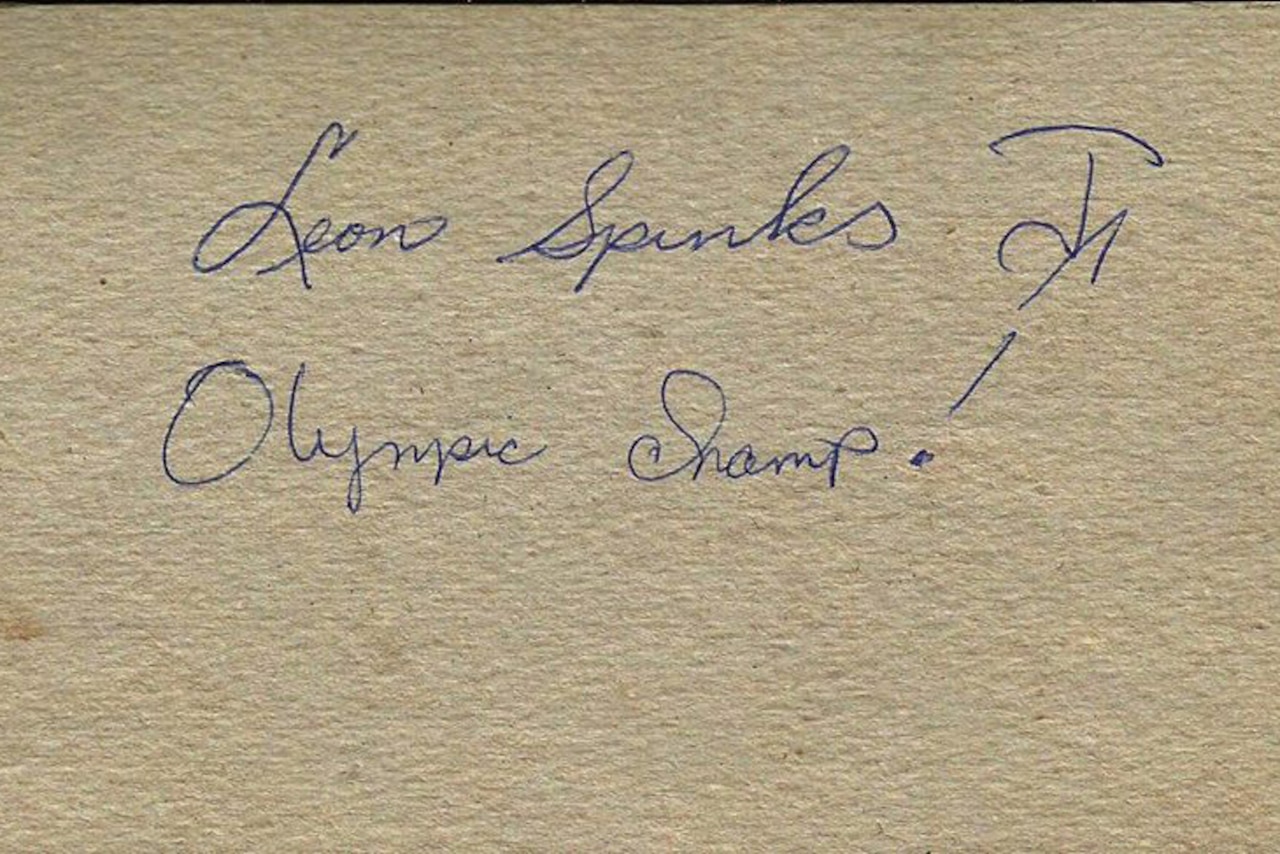 Leon Spinks Jr
Olympic Champ!